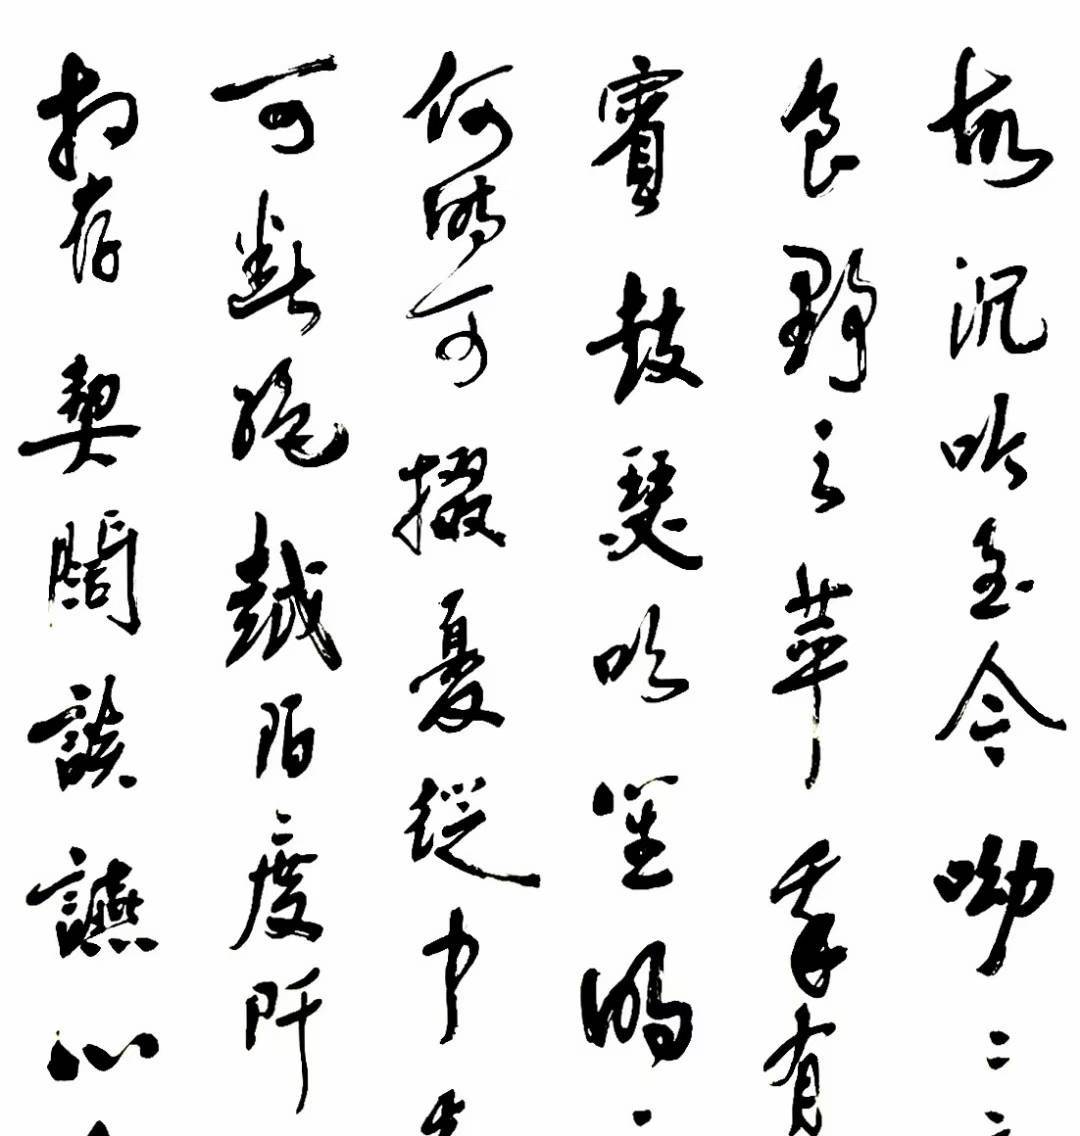 故沉吟至今呦々
食野之苹我有
賓鼓瑟吹笙明
何時可掇憂從中
可斷絕越陌度阡
相存契闊談讌心